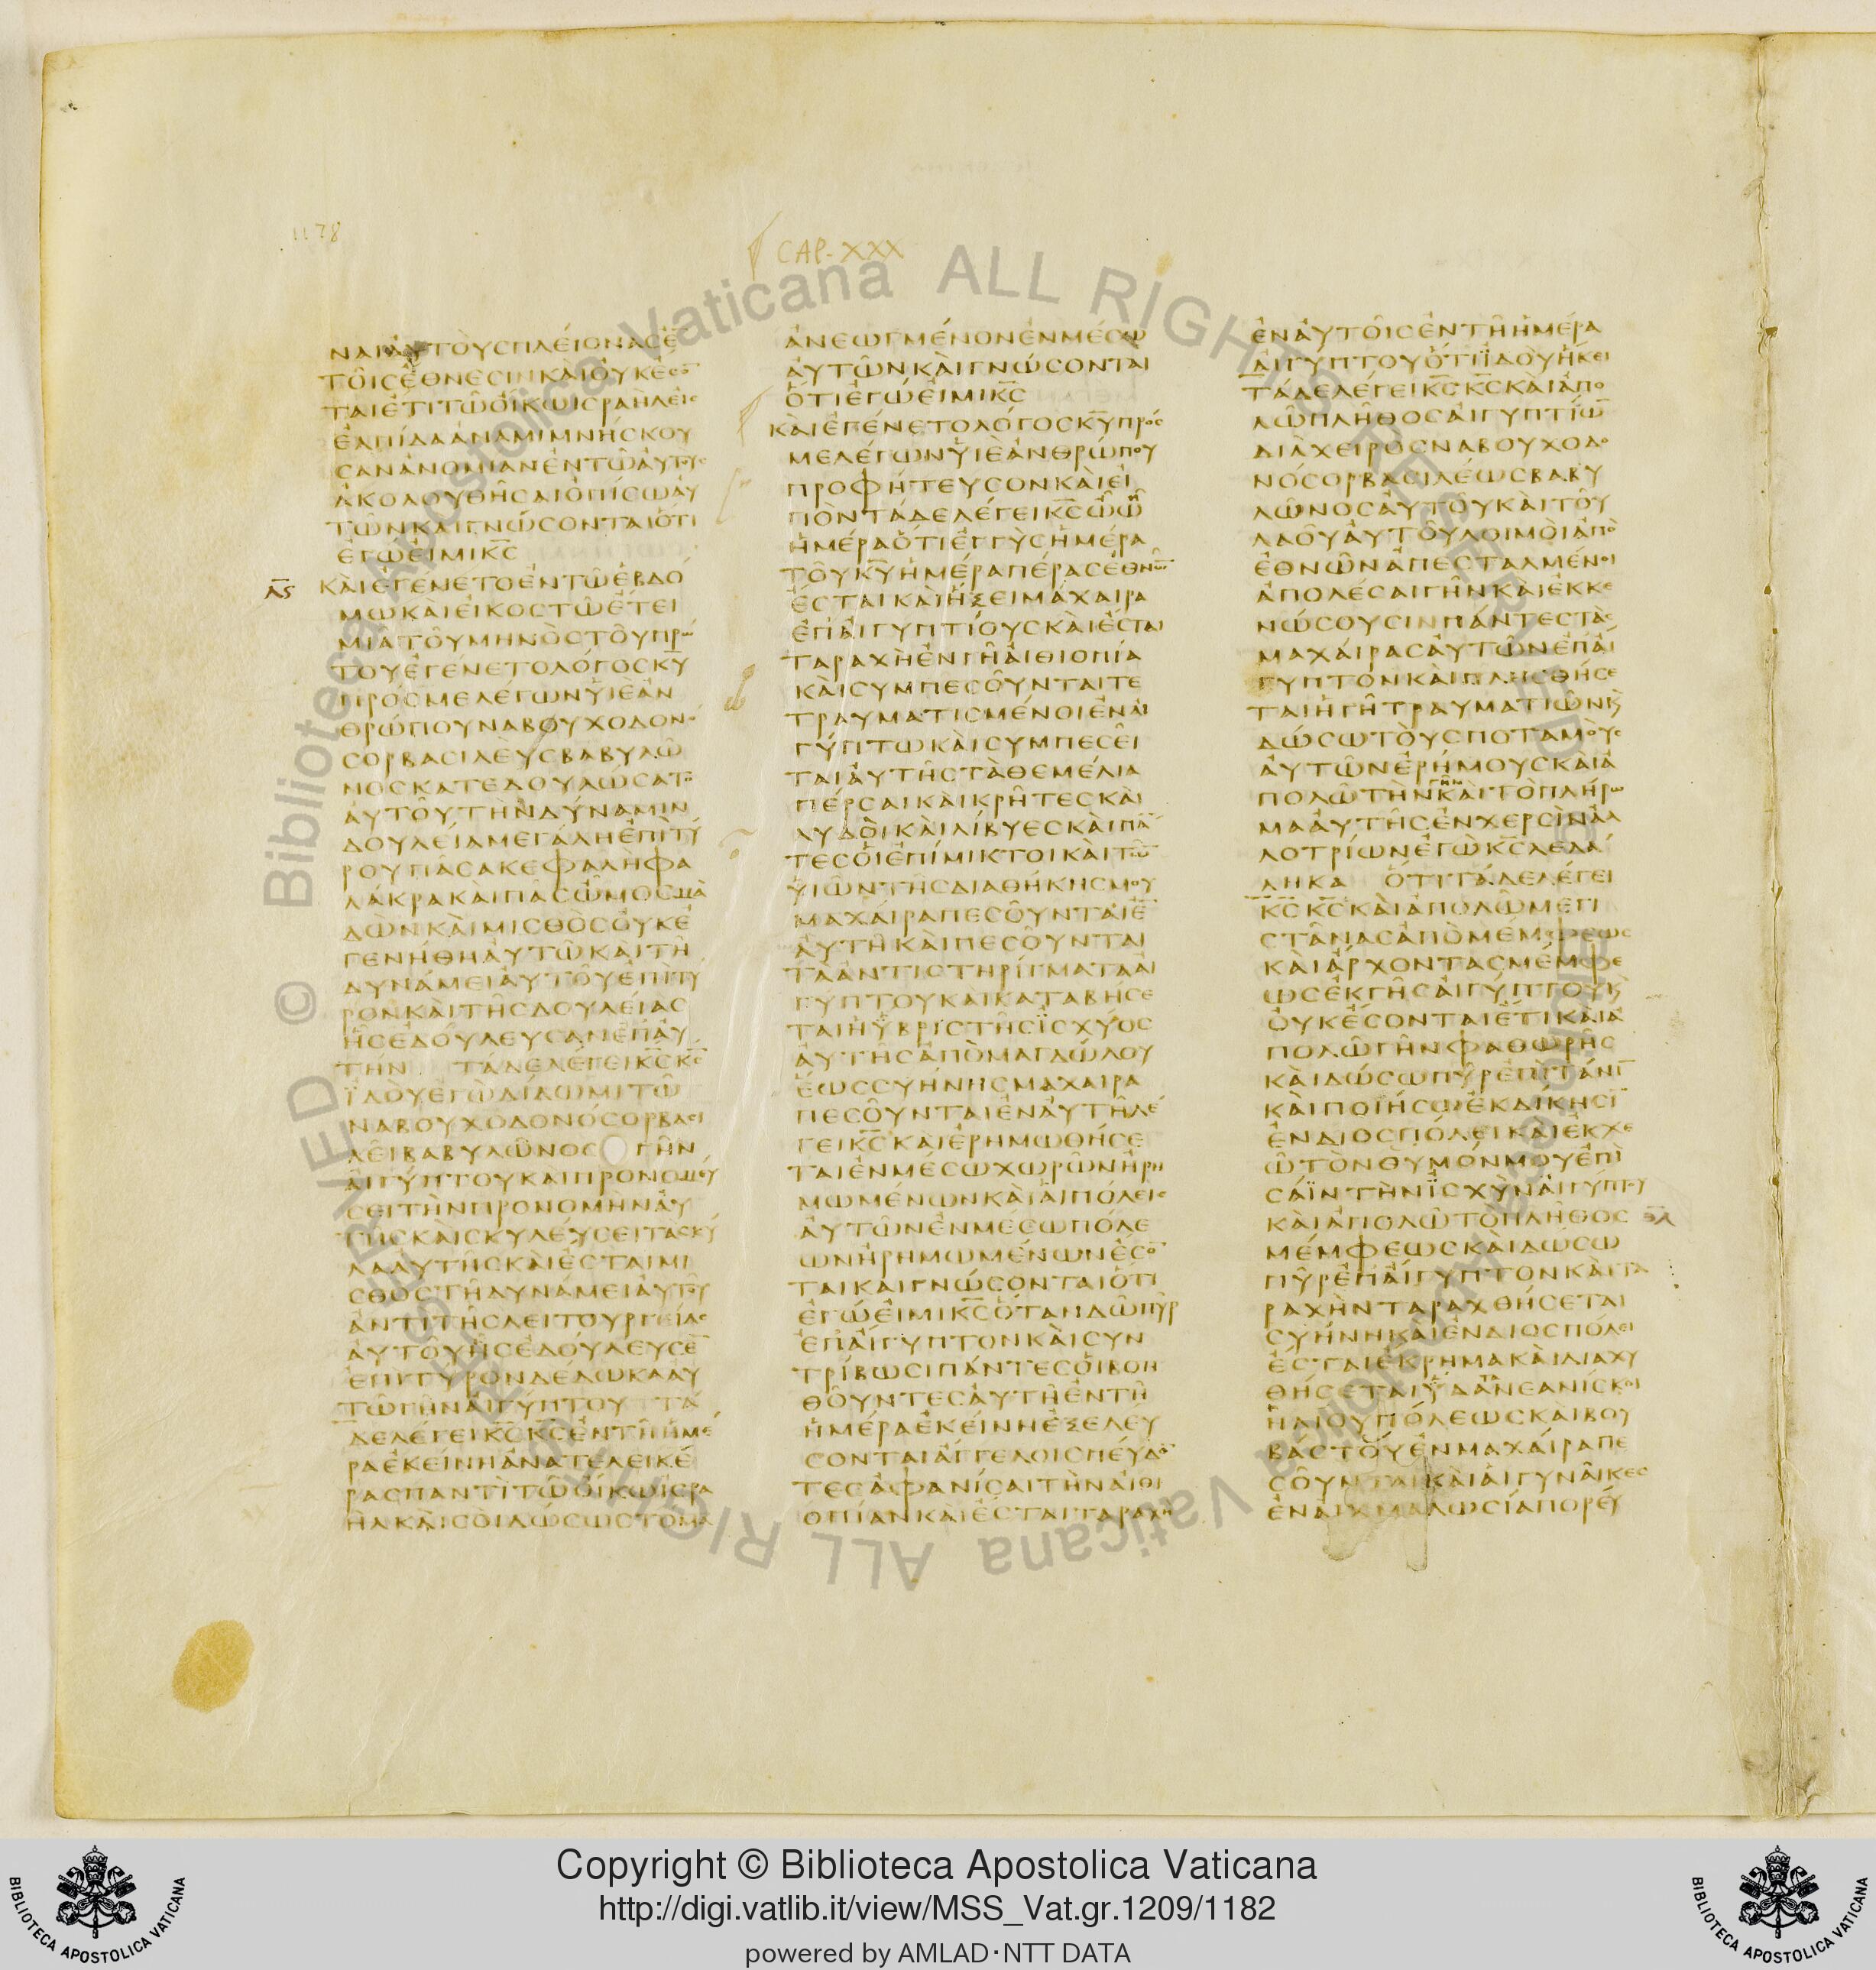 1178
CAP-XXX
ΝΑΙΑΥΤΟΥΣΠΛΕΙΟΝΑΣΕ̅
ΤΟΙΣΕΘΝΕΣΙΝΚΑΙΟΥΚΕΣΟ̅
ΤΑΙΕΤΙΤΩΟΙΚΩΙΣΡΑΗΛΕΙΣ
ΕΛΠΙΔΑΑΝΑΜΙΜΝΗΣΚΟΥ
ΣΑΝΑΝΟΜΙΑΝΕΝΤΩΑΥΤΟΥΣ
ΑΚΟΛΟΥΘΗΣΑΙΟΠΙΣΩΑΥ
ΤΩΝΚΑΙΓΝΩΣΟΝΤΑΙΟΤΙ
ΕΓΩΕΙΜΙΚ̅Σ̅
ΚΑΙΕΓΕΝΕΤΟΕΝΤΩΕΒΔΟ
ΜΩΚΑΙΕΙΚΟΣΤΩΕΤΕΙ
ΜΙΑΤΟΥΜΗΝΟΣΤΟΥΠΡΩ
ΤΟΥΕΓΕΝΕΤΟΛΟΓΟΣΚ̅Υ̅
ΠΡΟΣΜΕΛΕΓΩΝΥΙΕΑΝ
ΘΡΩΠΟΥΝΑΒΟΥΧΟΔΟΝΟ
ΣΟΡΒΑΣΙΛΕΥΣΒΑΒΥΛΩ̅
ΝΟΣΚΑΤΕΔΟΥΛΩΣΑΤΟ
ΑΥΤΟΥΤΗΝΔΥΝΑΜΙΝ
ΔΟΥΛΕΙΑΜΕΓΑΛΗΕΠΙΤΥ
ΡΟΥΠΑΣΑΚΕΦΑΛΗΦΑ
ΛΑΚΡΑΚΑΙΠΑΣΩΜΟΣΜΑ
ΔΩΝΚΑΙΜΙΣΘΟΣΟΥΚΕ
ΓΕΝΗΘΗΑΥΤΩΚΑΙΤΗ
ΔΥΝΑΜΕΙΑΥΤΟΥΕΠΙΤΥ
ΡΟΝΚΑΙΤΗΣΔΟΥΛΕΙΑΣ
ΗΣΕΔΟΥΛΕΥΣΑΝΕΠΑΥ
ΤΗΝ ΤΑΔΕΛΕΓΕΙΚ̅Σ̅Κ̅Σ̅
ΪΔΟΥΕΓΩΔΙΔΩΜΙΤΩ
ΝΑΒΟΥΧΟΔΟΝΟΣΟΡΒΑΣΙ
ΛΕΙΒΑΒΥΛΩΝΟΣ ΓΗΝ
ΑΙΓΥΠΤΟΥΚΑΙΠΡΟΝΟΜΕΥ
ΣΕΙΤΗΝΠΡΟΝΟΜΗΝΑΥ
ΤΗΣΚΑΙΣΚΥΛΕΥΣΕΙΤΑΣΚΥ
ΛΑΑΥΤΗΣΚΑΙΕΣΤΑΙΜΙ
ΣΘΟΣΤΗΔΥΝΑΜΕΙΑΥΤΟΥ
ΑΝΤΙΤΗΣΛΕΙΤΟΥΡΓΕΙΑΣ
ΑΥΤΟΥΗΣΕΔΟΥΛΕΥΣΕ̅
ΕΠΙΤΥΡΟΝΔΕΔΩΚΑΑΥ
ΤΩΓΗΝΑΙΓΥΠΤΟΥ ΤΑ
ΔΕΛΕΓΕΙΚ̅Σ̅Κ̅Σ̅ΕΝΤΗΗΜΕ
ΡΑΕΚΕΙΝΗΑΝΑΤΕΛΕΙΚΕ
ΡΑΣΠΑΝΤΙΤΩΟΙΚΩΙΣΡΑ
ΗΛΚΑΙΣΟΙΔΩΣΩΣΤΟΜΑ
ΑΝΕΩΓΜΕΝΟΝΕΝΜΕΣΩ
ΑΥΤΩΝΚΑΙΓΝΩΣΟΝΤΑΙ
ΟΤΙΕΓΩΕΙΜΙΚ̅Σ̅
ΚΑΙΕΓΕΝΕΤΟΛΟΓΟΣΚ̅Υ̅ΠΡΟΣ
ΜΕΛΕΓΩΝΥΙΕΑΝΘΡΩΠΟΥ
ΠΡΟΦΗΤΕΥΣΟΝΚΑΙΕΙ
ΠΟΝΤΑΔΕΛΕΓΕΙΚ̅Σ̅ΩΩ
ΗΜΕΡΑΟΤΙΕΓΓΥΣΗΜΕΡΑ
ΤΟΥΚ̅Υ̅ΗΜΕΡΑΠΕΡΑΣΕΘΝΩ̅
ΕΣΤΑΙΚΑΙΗΞΕΙΜΑΧΑΙΡΑ
ΕΠΑΙΓΥΠΤΙΟΥΣΚΑΙΕΣΤΑΙ
ΤΑΡΑΧΗΕΝΓΗΑΙΘΙΟΠΙΑ
ΚΑΙΣΥΜΠΕΣΟΥΝΤΑΙΤΕ
ΤΡΑΥΜΑΤΙΣΜΕΝΟΙΕΝΑΙ
ΓΥΠΤΩΚΑΙΣΥΜΠΕΣΕΙ
ΤΑΙΑΥΤΗΣΤΑΘΕΜΕΛΙΑ
ΠΕΡΣΑΙΚΑΙΚΡΗΤΕΣΚΑΙ
ΛΥΔΟΙΚΑΙΛΙΒΥΕΣΚΑΙΠΑ̅
ΤΕΣΟΙΕΠΙΜΙΚΤΟΙΚΑΙΤΩ̅
ΥΙΩΝΤΗΣΔΙΑΘΗΚΗΣΜΟΥ
ΜΑΧΑΙΡΑΠΕΣΟΥΝΤΑΙΕ̅
ΑΥΤΗΚΑΙΠΕΣΟΥΝΤΑΙ
ΤΑΑΝΤΙΣΤΗΡΙΓΜΑΤΑΑΙ
ΓΥΠΤΟΥΚΑΙΚΑΤΑΒΗΣΕ
ΤΑΙΗΥΒΡΙΣΤΗΣΪΣΧΥΟΣ
ΑΥΤΗΣΑΠΟΜΑΓΔΩΛΟΥ
ΕΩΣΣΥΗΝΗΣΜΑΧΑΙΡΑ
ΠΕΣΟΥΝΤΑΙΕΝΑΥΤΗΛΕ
ΓΕΙΚ̅Σ̅ΚΑΙΕΡΗΜΩΘΗΣΕ
ΤΑΙΕΝΜΕΣΩΧΩΡΩΝΗΡΗ
ΜΩΜΕΝΩΝΚΑΙΑΙΠΟΛΕΙΣ
ΑΥΤΩΝΕΝΜΕΣΩΠΟΛΕ
ΩΝΗΡΗΜΩΜΕΝΩΝΕΣΟ̅
ΤΑΙΚΑΙΓΝΩΣΟΝΤΑΙΟΤΙ
ΕΓΩΕΙΜΙΚ̅Σ̅ΟΤΑΝΔΩΠΥΡ
ΕΠΑΙΓΥΠΤΟΝΚΑΙΣΥΝ
ΤΡΙΒΩΣΙΠΑΝΤΕΣΟΙΒΟΗ
ΘΟΥΝΤΕΣΑΥΤΗΕΝΤΗ
ΗΜΕΡΑΕΚΕΙΝΗΕΞΕΛΕΥ
ΣΟΝΤΑΙΑΓΓΕΛΟΙΣΠΕΥΔΟ̅
ΤΕΣΑΦΑΝΙΣΑΙΤΗΝΑΙΘΙ
ΟΠΙΑΝΚΑΙΕΣΤΑΙΤΑΡΑΧΗ
ΕΝΑΥΤΟΙΣΕΝΤΗΗΜΕΡΑ
ΑΙΓΥΠΤΟΥΟΤΙΪΔΟΥΗΚΕΙ
ΤΑΔΕΛΕΓΕΙΚ̅Σ̅Κ̅Σ̅ΚΑΙΑΠΟ
ΛΩΠΛΗΘΟΣΑΙΓΥΠΤΙΩ̅
ΔΙΑΧΕΙΡΟΣΝΑΒΟΥΧΟΔΟ
ΝΟΣΟΡΒΑΣΙΛΕΩΣΒΑΒΥ
ΛΩΝΟΣΑΥΤΟΥΚΑΙΤΟΥ
ΛΑΟΥΑΥΤΟΥΛΟΙΜΟΙΑΠΟ
ΕΘΝΩΝΑΠΕΣΤΑΛΜΕΝΟΙ
ΑΠΟΛΕΣΑΙΓΗΝΚΑΙΕΚΚΕ
ΝΩΣΟΥΣΙΝΠΑΝΤΕΣΤΑΣ
ΜΑΧΑΙΡΑΣΑΥΤΩΝΕΠΑΙ
ΓΥΠΤΟΝΚΑΙΠΛΗΣΘΗΣΕ
ΤΑΙΗΓΗΤΡΑΥΜΑΤΙΩΝΚ
ΔΩΣΩΤΟΥΣΠΟΤΑΜΟΥΣ
ΑΥΤΩΝΕΡΗΜΟΥΣΚΑΙΑ
ΠΟΛΩΤΗΝΓΗΝΚΑΙΤΟΠΛΗΡΩ
ΜΑΑΥΤΗΣΕΝΧΕΡΣΙΝΑΛ
ΛΟΤΡΙΩΝΕΓΩΚ̅Σ̅ΛΕΛΑ
ΛΗΚΑ ΟΤΙΤΑΔΕΛΕΓΕΙ
Κ̅Σ̅Κ̅Σ̅ΚΑΙΑΠΟΛΩΜΕΓΙ
ΣΤΑΝΑΣΑΠΟΜΕΜΦΕΩΣ
ΚΑΙΑΡΧΟΝΤΑΣΜΕΜΦΕ
ΩΣΕΚΓΗΣΑΙΓΥΠΤΟΥΚ
ΟΥΚΕΣΟΝΤΑΙΕΤΙΚΑΙΑ
ΠΟΛΩΓΗΝΦΑΘΩΡΗΣ
ΚΑΙΔΩΣΩΠΥΡΕΠΙΤΑΝΙ̅
ΚΑΙΠΟΙΗΣΩΕΚΔΙΚΗΣΙ̅
ΕΝΔΙΟΣΠΟΛΕΙΚΑΙΕΚΧΕ
ΩΤΟΝΘΥΜΟΝΜΟΥΕΠΙ
ΣΑΪΝΤΗΝΪΣΧΥΝΑΙΓΥΠΤΟΥ
ΚΑΙΑΠΟΛΩΤΟΠΛΗΘΟΣ
ΜΕΜΦΕΩΣΚΑΙΔΩΣΩ
ΠΥΡΕΠΑΙΓΥΠΤΟΝΚΑΙΤΑ
ΡΑΧΗΝΤΑΡΑΧΘΗΣΕΤΑΙ
ΣΥΗΝΗΚΑΙΕΝΔΙΟΣΠΟΛΕΙ
ΕΣΤΑΙΕΚΡΗΜΑΚΑΙΔΙΑΧΥ
ΘΗΣΕΤΑΙΥΔΑΝΕΑΝΙΣΚΟΙ
ΗΛΙΟΥΠΟΛΕΩΣΚΑΙΒΟΥ
ΒΑΣΤΟΥΕΝΜΑΧΑΙΡΑΠΕ
ΣΟΥΝΤΑΙΚΑΙΑΙΓΥΝΑΙΚΕΣ
ΕΝΑΙΧΜΑΛΩΣΙΑΠΟΡΕΥ
Copyright © Biblioteca Apostolica Vaticana
http://digi.vatlib.it/view/MSS_Vat.gr.1209/1182
powered by AMLAD·NTT DATA